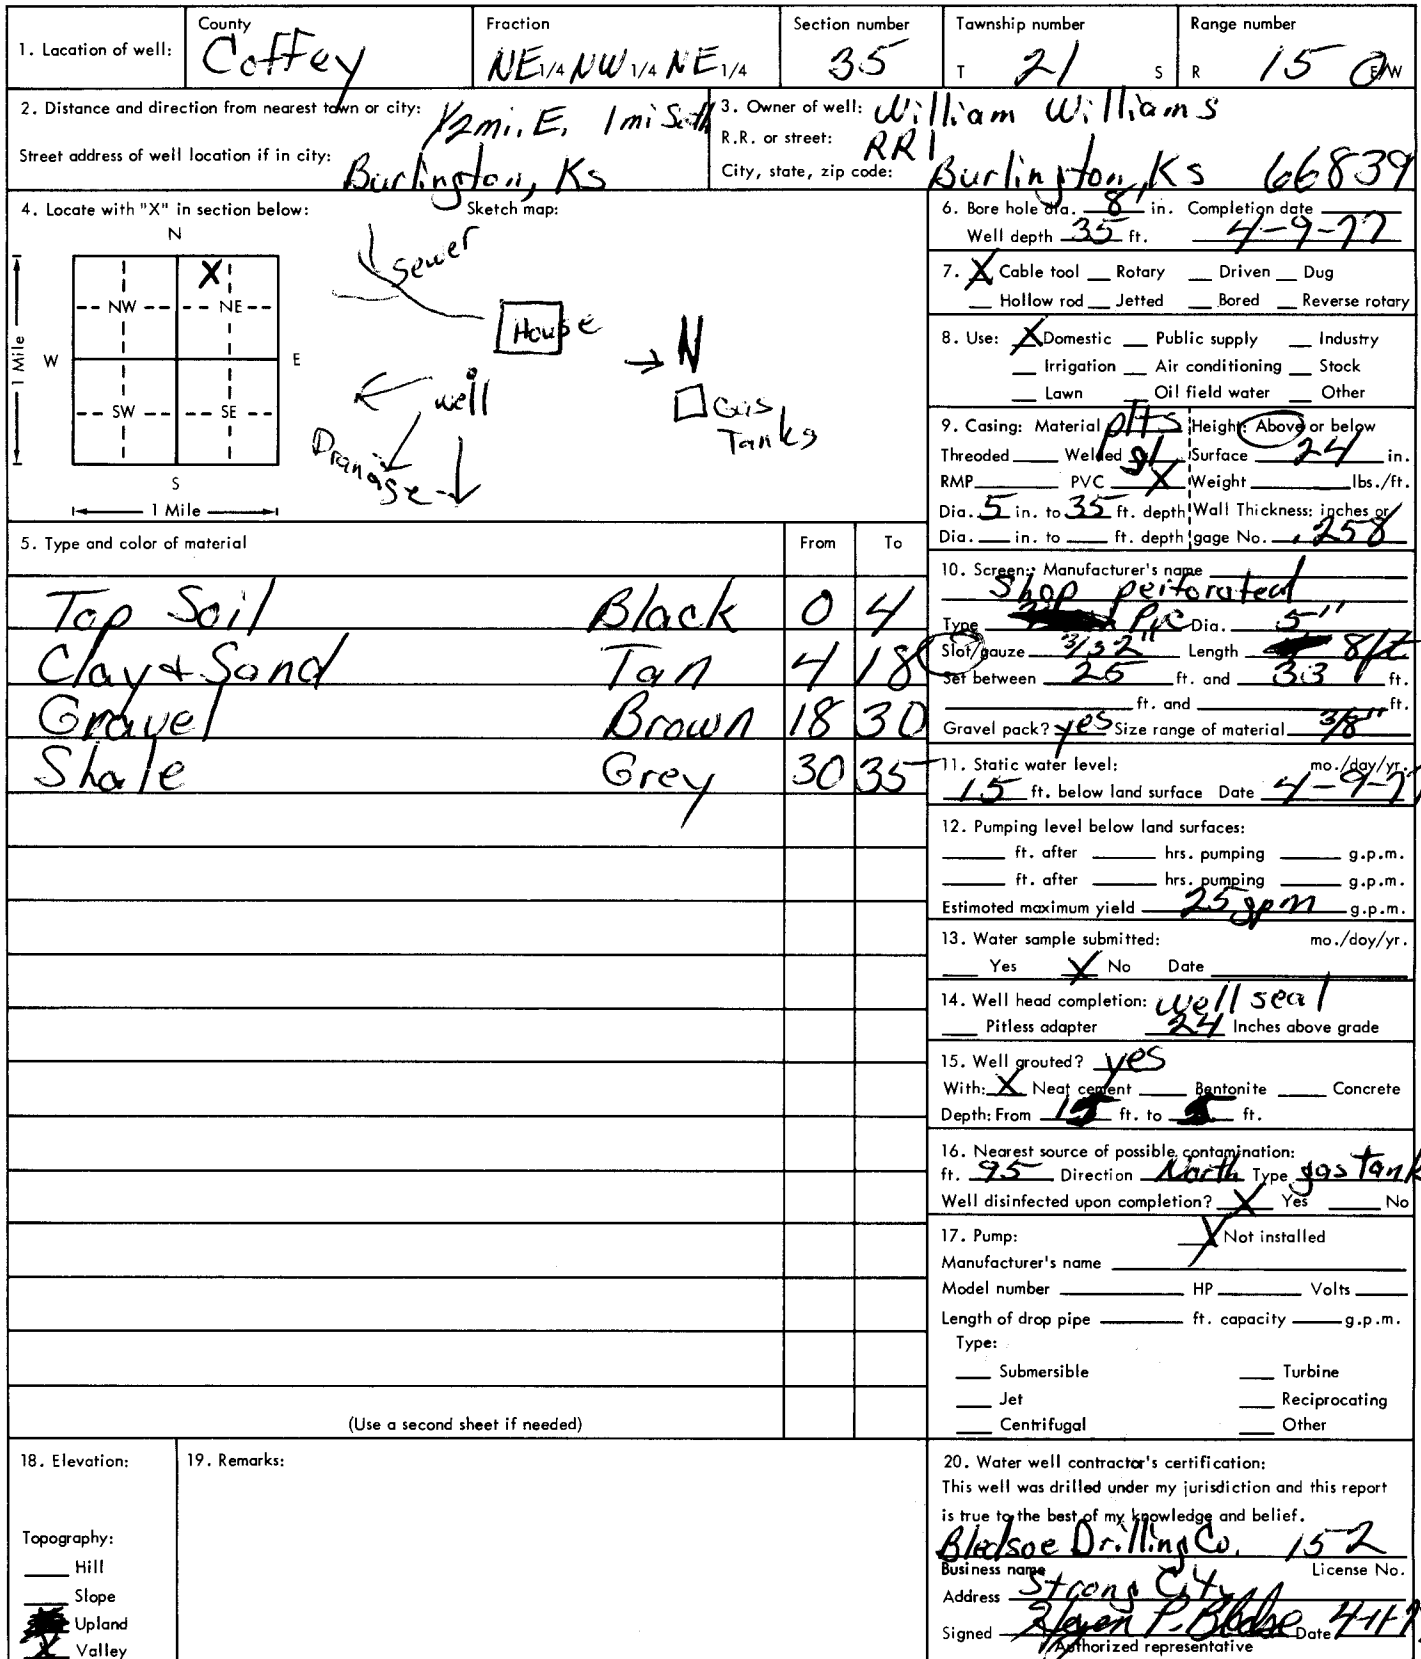 1. Location of well: County Coffey Fraction NE 1/4 NW 1/4 NE 1/4 Section number 35 Township number T 21 S Range number R 15 E/W
2. Distance and direction from nearest town or city: 1/2 mi. E. 1 mi South
Street address of well location if in city: Burlington, Ks
3. Owner of well: William Williams
R.R. or street: RR1
City, state, zip code: Burlington, Ks 66839
4. Locate with "X" in section below:
N
NW X NE
W E
SW SE
S
1 Mile
1 Mile
Sketch map:
Sewer
House
N
well
Gas
Tanks
Dranage
5. Type and color of material From To
Top Soil Black 0 4
Clay + Sand Tan 4 18
Gravel Brown 18 30
Shale Grey 30 35
(Use a second sheet if needed)
6. Bore hole dia. 8" in. Completion date
Well depth 35 ft. 4-9-77
7. X Cable tool Rotary Driven Dug
Hollow rod Jetted Bored Reverse rotary
8. Use: X Domestic Public supply Industry
Irrigation Air conditioning Stock
Lawn Oil field water Other
9. Casing: Material plts Height: Above or below
Threaded Welded gl Surface 24 in.
RMP PVC X Weight lbs./ft.
Dia. 5 in. to 35 ft. depth Wall Thickness: inches or
Dia. in. to ft. depth gage No. .258
10. Screen: Manufacturer's name
Shop perforated
Type PVC Dia. 5"
Slot/gauze 3/32" Length 8ft
Set between 25 ft. and 33 ft.
ft. and ft.
Gravel pack? yes Size range of material 3/8"
11. Static water level: mo./day/yr.
15 ft. below land surface Date 4-9-77
12. Pumping level below land surfaces:
ft. after hrs. pumping g.p.m.
ft. after hrs. pumping g.p.m.
Estimated maximum yield 25 gpm g.p.m.
13. Water sample submitted: mo./day/yr.
Yes X No Date
14. Well head completion: well seal
Pitless adapter 24 Inches above grade
15. Well grouted? yes
With: X Neat cement Bentonite Concrete
Depth: From ft. to ft.
16. Nearest source of possible contamination:
ft. 95 Direction North Type gas tank
Well disinfected upon completion? X Yes No
17. Pump: X Not installed
Manufacturer's name
Model number HP Volts
Length of drop pipe ft. capacity g.p.m.
Type:
Submersible Turbine
Jet Reciprocating
Centrifugal Other
18. Elevation:
Topography:
Hill
Slope
Upland
X Valley
19. Remarks:
20. Water well contractor's certification:
This well was drilled under my jurisdiction and this report
is true to the best of my knowledge and belief.
Bledsoe Drilling Co. 152
Business name License No.
Address Strong City
Signed P. Bledsoe Date 4-11-7
Authorized representative